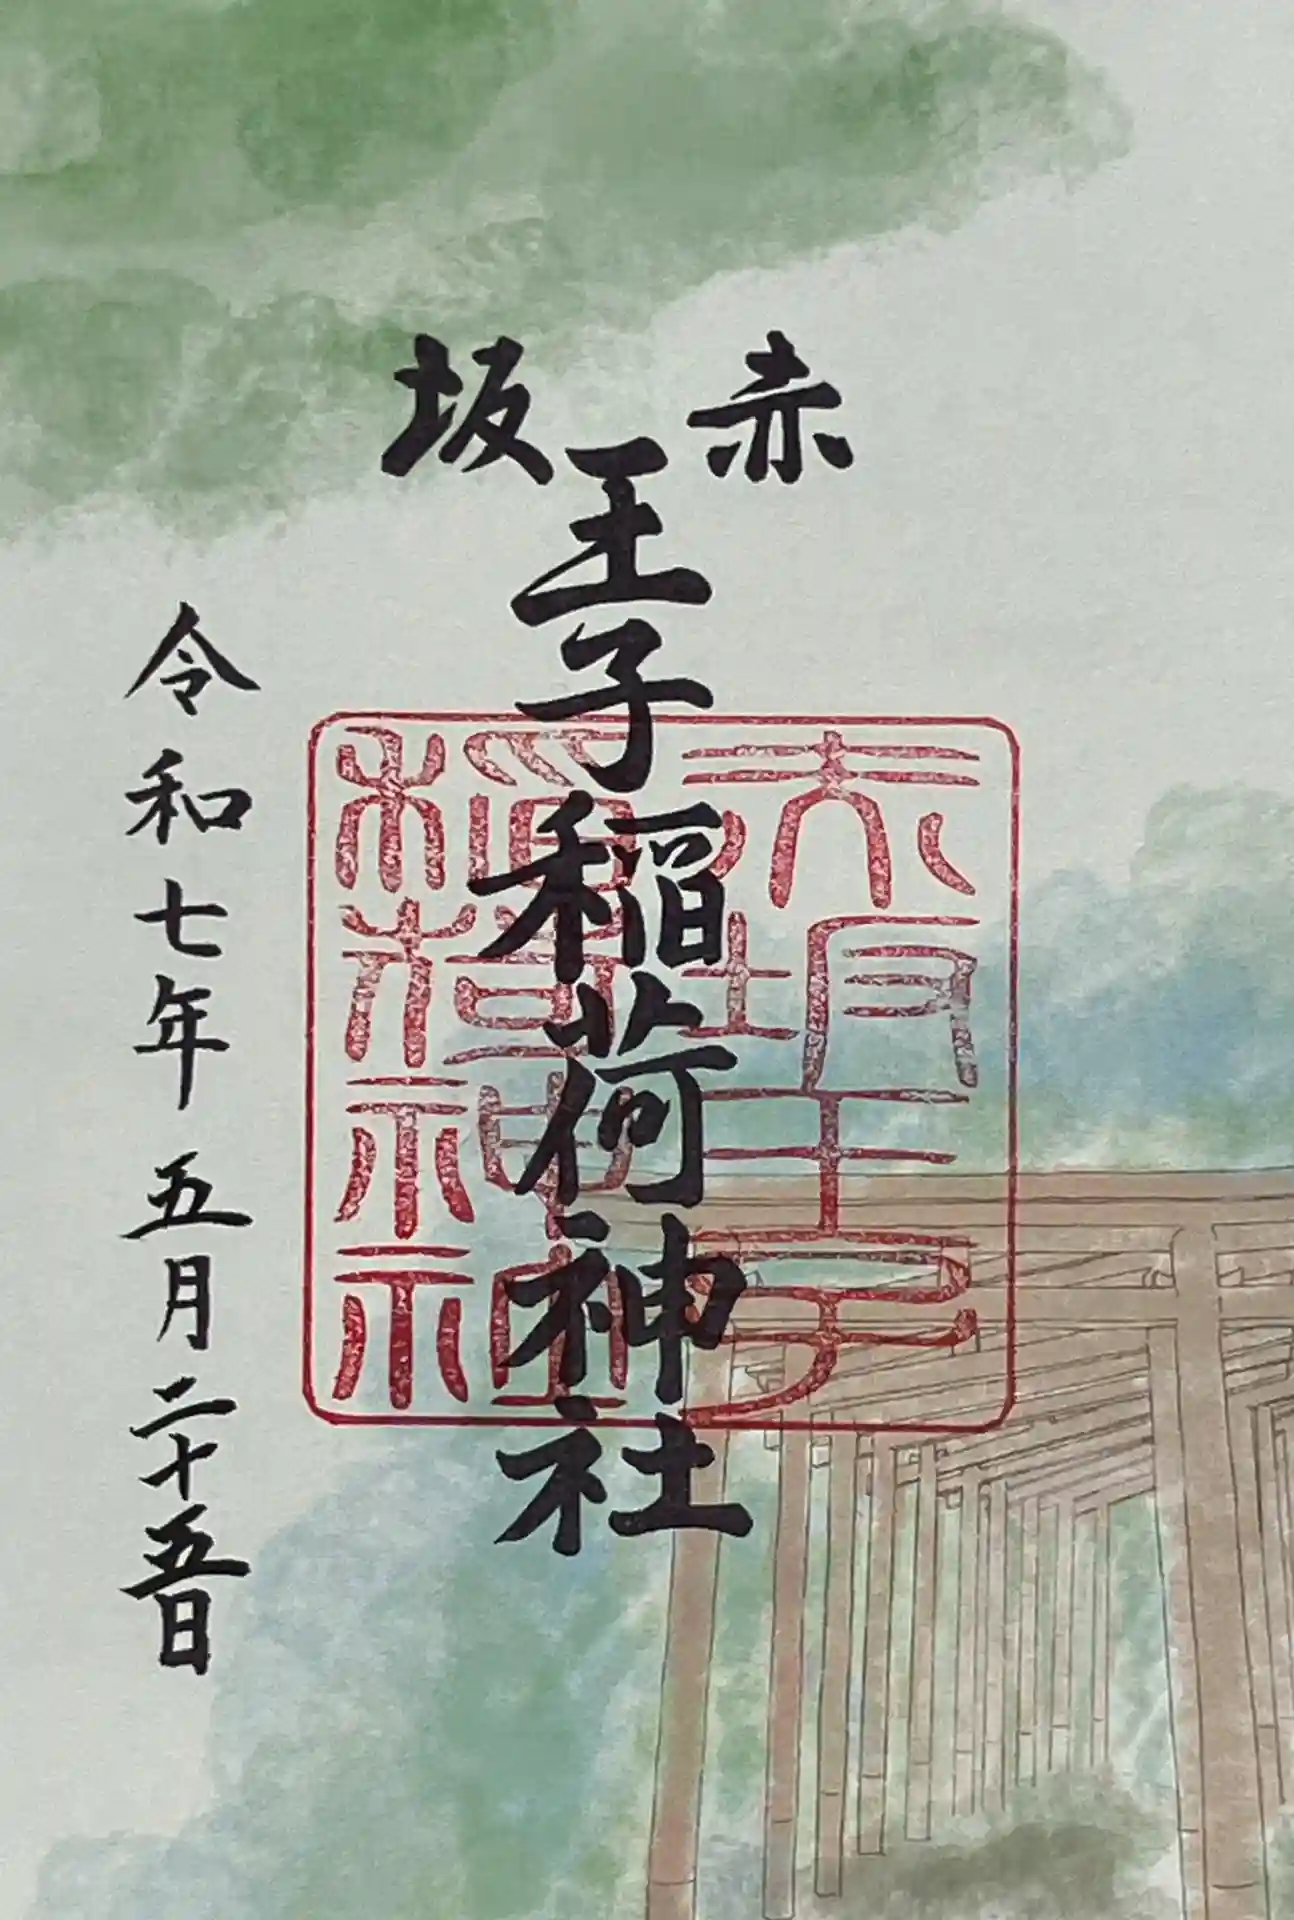 赤坂
王子稲荷神社
令和七年五月二十五日
赤坂王子
稲荷神社